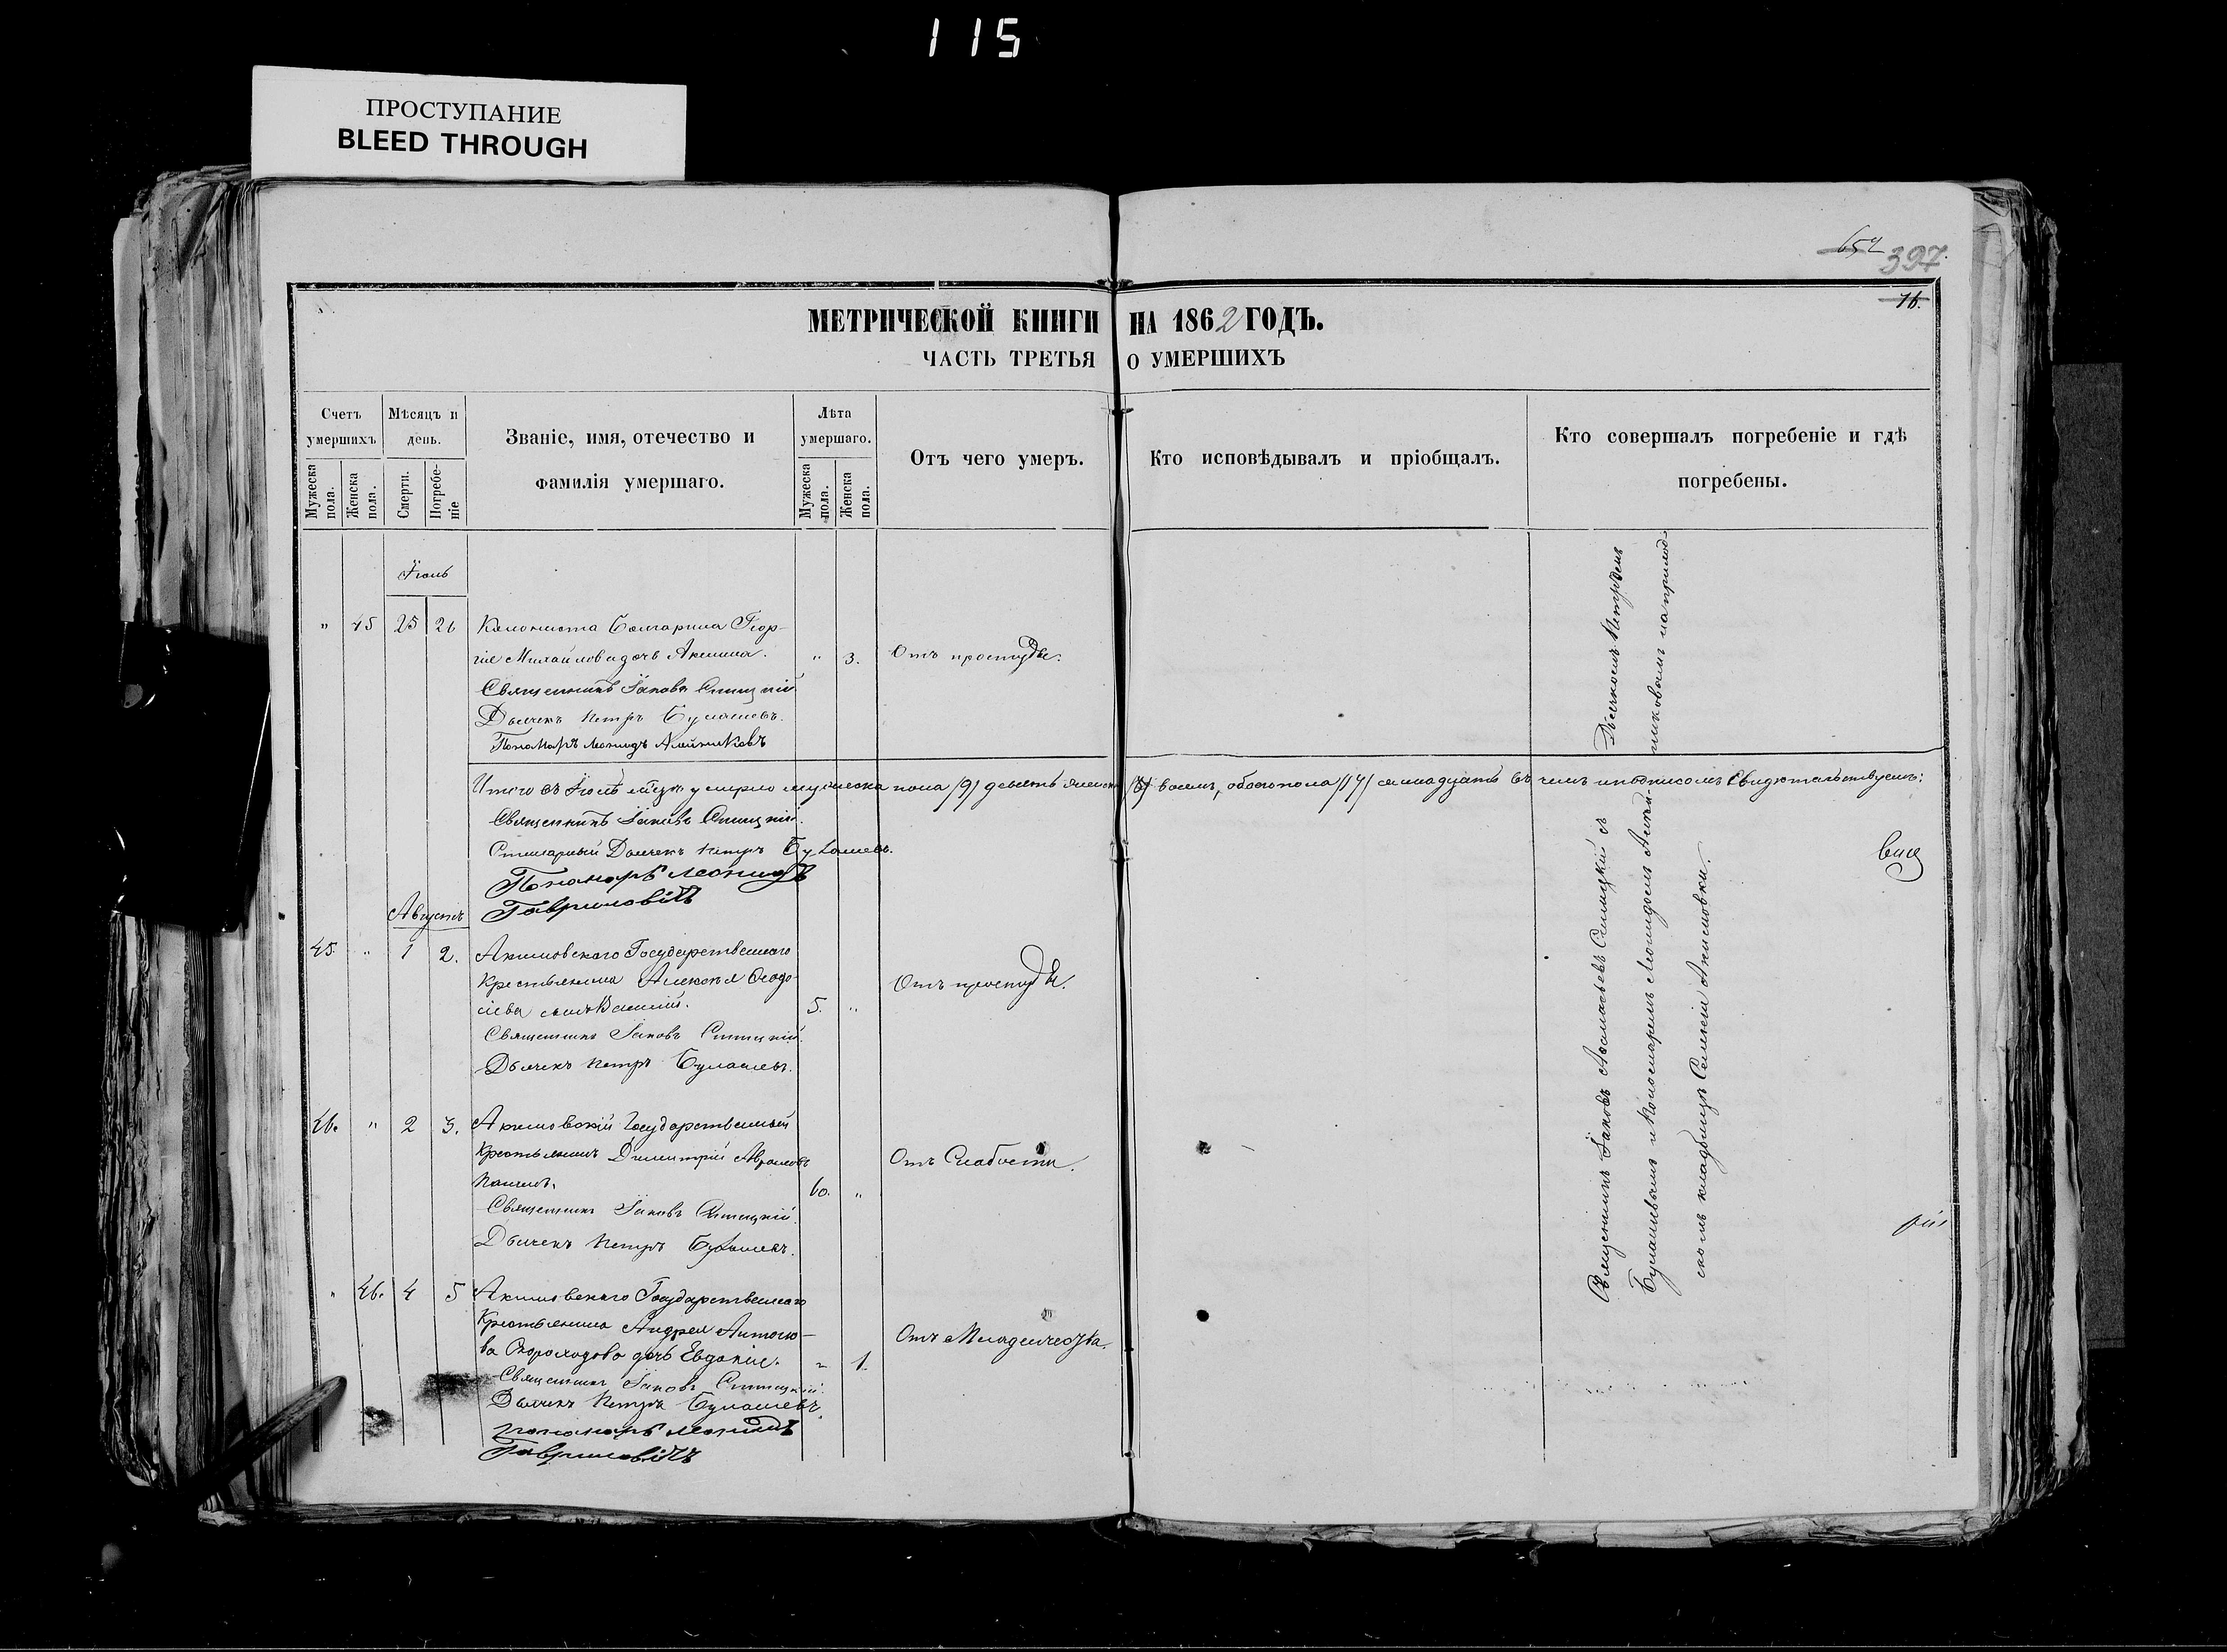 115
ПРОСТУПАНИЕ
BLEED THROUGH
652
397.
16.
МЕТРИЧЕСКОЙ КНИГИ НА 1862 ГОДЪ.
ЧАСТЬ ТРЕТЬЯ О УМЕРШИХЪ
Счетъ умершихъ
Мужеска пола.
Женска пола.
Мѣсяцъ и день.
Смерти.
Погребеніе
Званіе, имя, отечество и
фамилія умершаго.
Лѣта умершаго.
Мужеска пола.
Женска пола.
Отъ чего умеръ.
Кто исповѣдывалъ и пріобщалъ.
Кто совершалъ погребеніе и гдѣ
погребены.
Іюль
" 45 25 26 Колониста Болгарина Геор-
гія Михайлова дочь Акилина. " 3. Отъ простуды.
Священникъ Іаковъ Спицкій
Дьячекъ Петръ Булашевъ.
Пономарь Леонидъ
Итого въ Іюлѣ м-цѣ умерло мужеска пола /9/ девять женска /8/ восемь, обоего пола /17/ семнадцать въ чемъ и подписомъ Свидѣтельствуемъ:
Священникъ Іаковъ Спицкій.
Дьячекъ Петръ Булашевъ.
Пономарь Леонидъ
Гавриловичъ
Августъ
45. " 1 2. Акимовскаго Государственнаго
Крестьянина Алексѣя Ѳеодо-
сіева сынъ Василій. 5. " Отъ простуды.
Священникъ Іаковъ Спицкій.
Дьячекъ Петръ Булашевъ.
46. " 2 3. Акимовскій Государственный
Крестьянинъ Димитрій Аврамовъ
60. " Отъ Слабости.
Священникъ Іаковъ Спицкій.
Дьячекъ Петръ Булашевъ.
" 46. 4 5 Акимовскаго Государственнаго
Крестьянина Андрея Антоно-
ва Скороходова дочь Евдокія. " 1. Отъ Младенчества.
Священникъ Іаковъ Спицкій.
Дьячекъ Петръ Булашевъ.
Пономарь Леонидъ
Гавриловичъ
Священникъ Іаковъ Спицкій съ Дьячкомъ Петромъ
Булашевымъ и Пономаремъ Леонидомъ на приход-
скомъ кладбищѣ Селенія Акимовки.